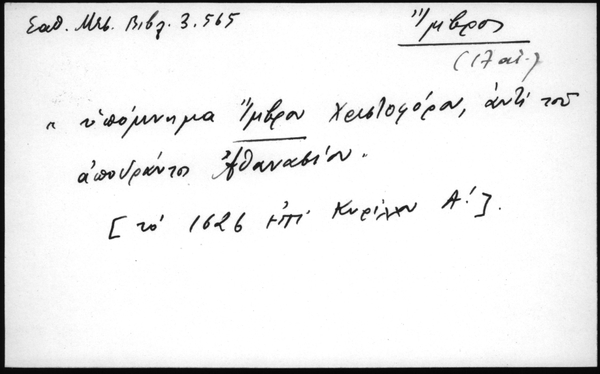 Σαθ. Μεσ. Βιβλ. 3. 565
Ἴμβρος
(17 αἰ.)
" ὑπόμνημα Ἴμβρου Χριστοφόρου, ἀντὶ τοῦ
ἀποθανόντος Ἀθανασίου.
[τὸ 1626 ἐπὶ Κυρίλλου Α!].